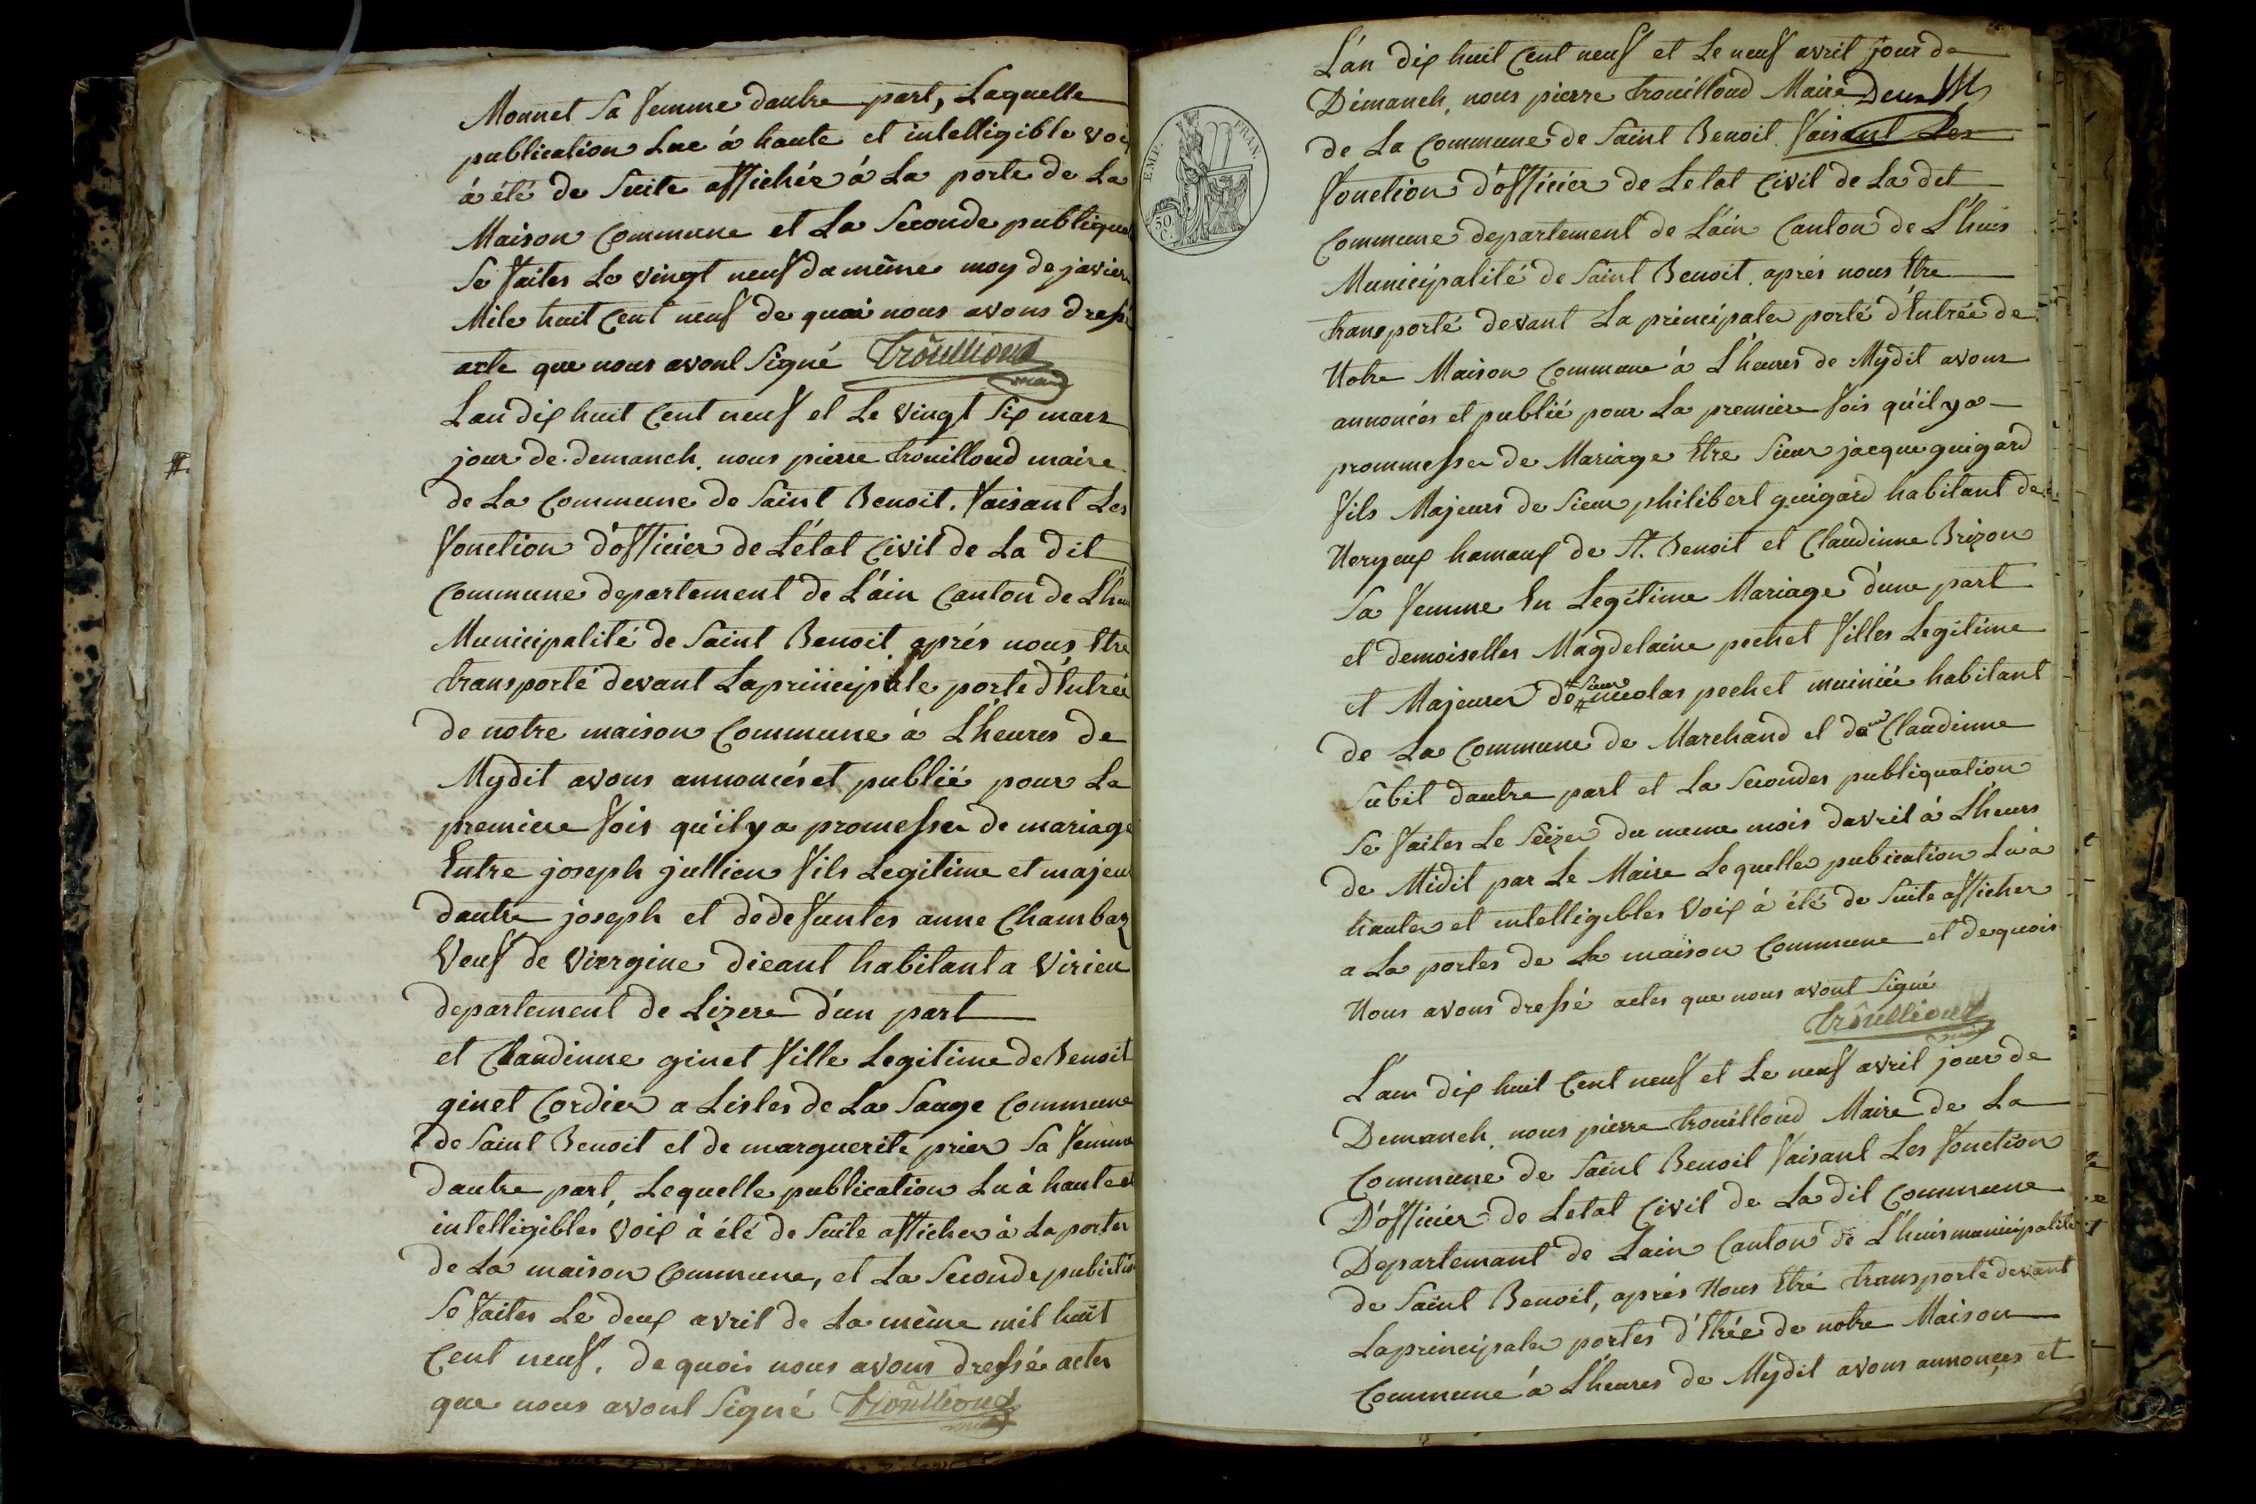 Monnet Sa femme dautre part, Laquelle
publication Lue à haute et intelligible voix
à été de Suite affichér à La porte de La
Maison Commune et La Seconde publiqua
Se faites Le vingt neuf du même moy de javier
Mile huit Cent neuf de quoi nous avons dressé
acte que nous avont Signé Trouilloud
maire
Lan dix huit Cent neuf et Le vingt Six mars
jour de demanch. nous pierre trouilloud maire
de La Commune de Saint Benoit. faisant Les
fonction d'officier de L'état Civil de La dit
Commune departement de L'áin Canton de Lhui
Municipalité de Saint Benoit aprés nous Etre
transporté devant La principale porte d'Entrée
de notre maison Commune à L'heures de
Mydit avons annoncés et publié pour La
premiere fois qu'il y a promesser de mariage
Entre joseph jullien fils Legitime et majeur
dautre joseph et de defuntes anne Chambaz
Veuf de viergine dieant habitant a Virieu
departement de Lizere d'un part
et Claudinne ginet fille Legitime de Benoit
ginet Cordier a Lisles de La Sauge Commune
de Saint Benoit et de marguerite prier Sa femme
dautre part, Lequelle publication Lu à haute et
intelligibles voix à été de Suite afficher à La porter
de La maison Commune, et La Seconde publictio
Se faites Le deux avril de La même mil huit
Cent neuf. de quois nous avons dressé actes
que nous avont Signé Trouilloud
maire
EMP. FRAN.
50 C.
L'án dix huit Cent neuf et Le neuf avril jour de
Dimanch, nous pierre trouilloud Maire
de La Commune de Saint Benoit faisant Les
fonction d'officier de Letat Civil de La dit
Commune departement de L'áin Canton de L'huis
Municipalité de Saint Benoit. aprés nous Etre
transporté devant La principaler porté d'Entrée de
Notre Maison Commune à L'heures de Mydit avons
annoncés et publié pour La premiere fois qu'il y a
prommesser de Mariage Etre Sieur jacque guigard
fils Majeurs de Sieur philibert guigard habitant de
Neryeux hamaux de St. Benoit et Claudinne Brizon
Sa femme En Legitime Mariage d'une part
et demoiselles Magdelaine pechet filles Legitime
et Majeures de Sieur nicolas pechet muinié habitant
de La Commune de Marchand et de Claudinne
Subit dautre part et La Secondes publiquation
Se faites Le Seizer du meme mois davril à L'heurs
de Midit par Le Maire Lequelles pubication Lu à
hauter et intelligibles Voix à été de Suite afficher
a La portes de La maison Commune et de quois
Nous avons dressé actes que nous avont Signé
Trouilloud
L'an dix huit Cent neuf et Le neuf avril jour de
Demanch, nous pierre trouilloud Maire de La
Commune de Saint Benoit faisant Les fonction
D'officier de Letat Civil de La dit Commune
Departemant de Lain Canton de L'huis municipalité
de Saint Benoit, aprés Nous Etré transporté devant
La principaler portes d'Etrée de notre Maison
Commune à L'heures de Mydit avons annonçés et